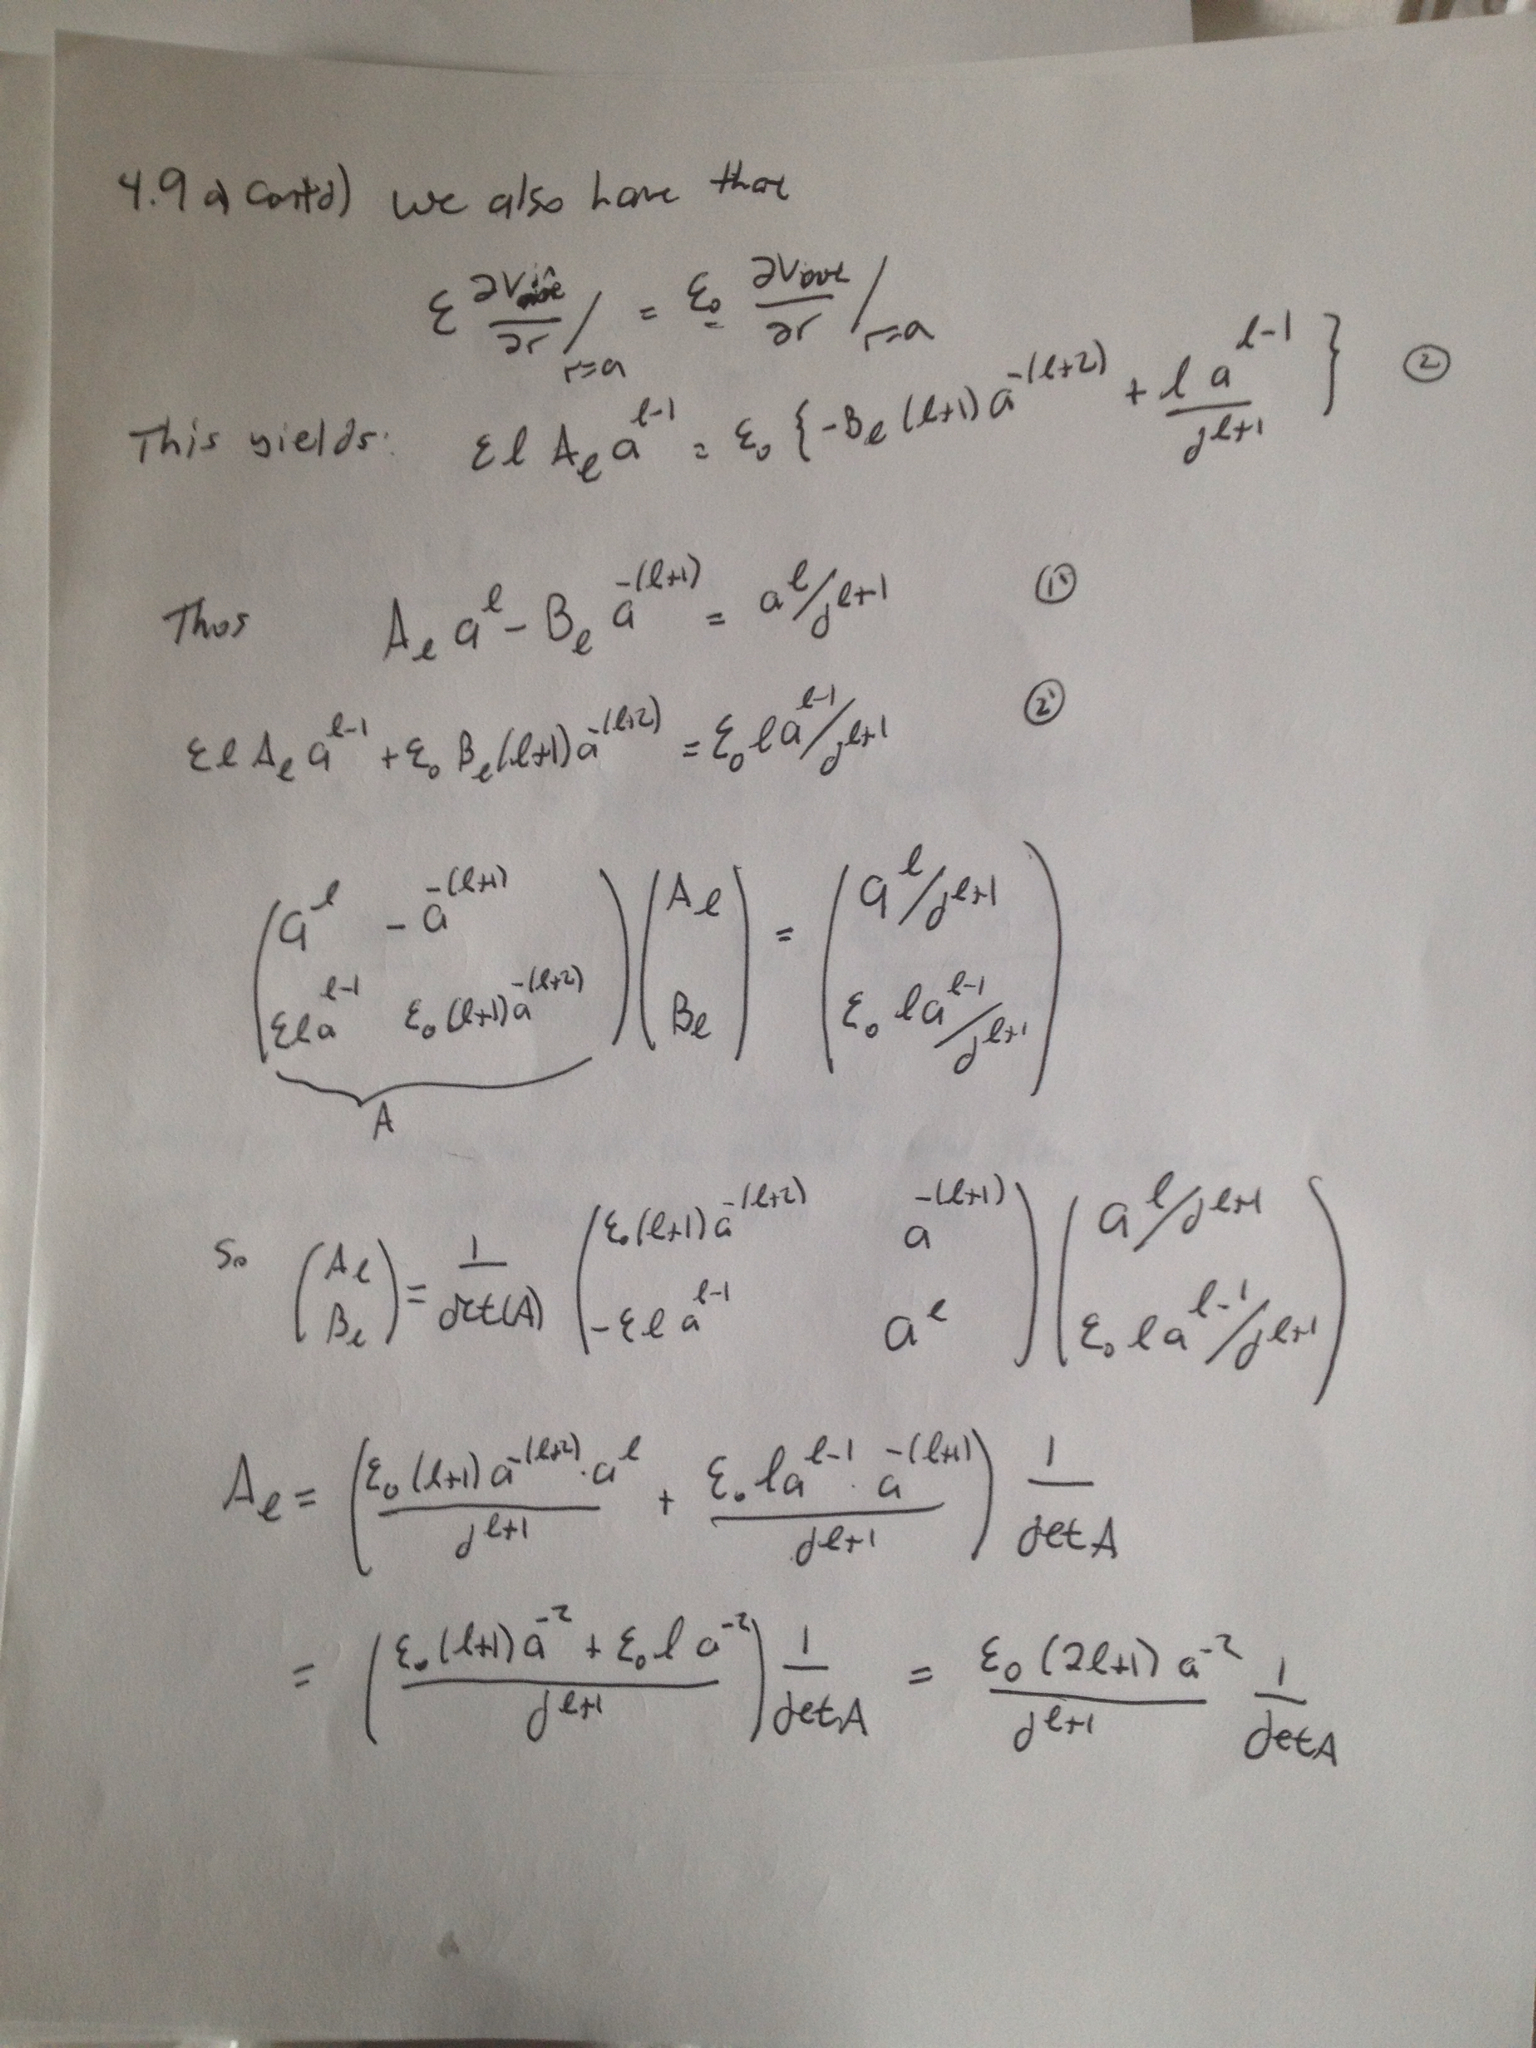 4.9 a) cont'd) we also have that
ε ∂V_in/∂r |_{r=a} = ε₀ ∂V_out/∂r |_{r=a}
This yields: ε l A_l a^{l-1} = ε₀ { -B_l (l+1) a^{-(l+2)} + l a^{l-1} / d^{l+1} } ②
Thus A_l a^l - B_l a^{-(l+1)} = a^l / d^{l+1} ①'
ε l A_l a^{l-1} + ε₀ B_l (l+1) a^{-(l+2)} = ε₀ l a^{l-1} / d^{l+1} ②'
( a^l   -a^{-(l+1)} ) ( A_l ) = ( a^l / d^{l+1} )
( ε l a^{l-1}   ε₀ (l+1) a^{-(l+2)} ) ( B_l )   ( ε₀ l a^{l-1} / d^{l+1} )
A
So ( A_l ) = 1/det(A) ( ε₀ (l+1) a^{-(l+2)}   a^{-(l+1)} ) ( a^l / d^{l+1} )
( B_l )   ( -ε l a^{l-1}   a^l ) ( ε₀ l a^{l-1} / d^{l+1} )
A_l = ( ε₀ (l+1) a^{-(l+2)} · a^l / d^{l+1} + ε₀ l a^{l-1} · a^{-(l+1)} / d^{l+1} ) 1/det A
= ( ε₀ (l+1) a^{-2} + ε₀ l a^{-2} / d^{l+1} ) 1/det A = ε₀ (2l+1) a^{-2} / d^{l+1} 1/det A